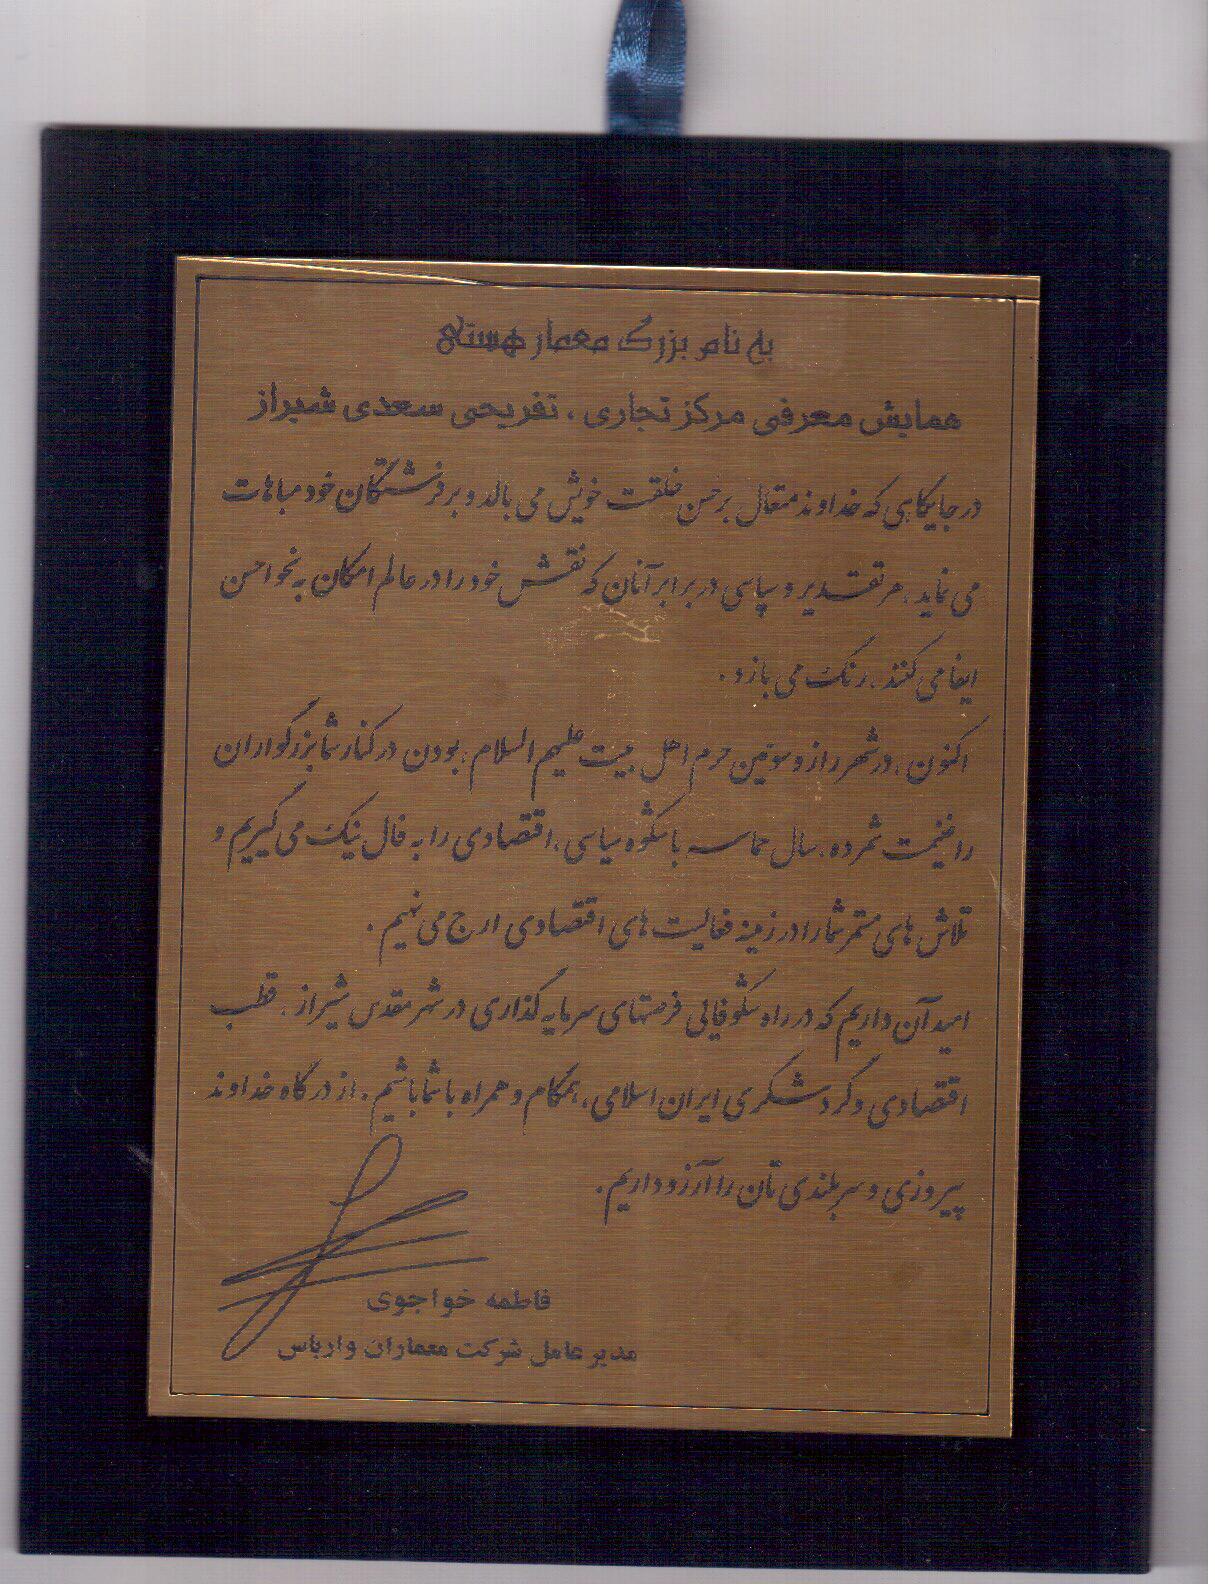 به نام بزرگ معمار هستی
همایش معرفی مرکز تجاری، تفریحی سعدی شیراز
در جایگاهی که خداوند متعال بر حسن خلقت خویش می بالد و بر فرشتگان خود مباهات
می نماید، هر تقدیر و سپاسی در برابر آنان که نقش خود را در عالم امکان به نحو احسن
ایفا می کنند، رنگ می بازد.
اکنون، در شهر راز و سومین حرم اهل بیت علیهم السلام، بودن در کنار شما بزرگواران
را غنیمت شمرده، سال حماسه باشکوه سیاسی، اقتصادی را به فال نیک می گیریم و
تلاش های مستمر شما را در زمینه فعالیت های اقتصادی ارج می نهیم.
امید آن داریم که در راه شکوفائی فرصتهای سرمایه گذاری در شهر مقدس شیراز، قطب
اقتصادی و گردشگری ایران اسلامی، همگام و همراه با شما باشیم. از درگاه خداوند
پیروزی و سربلندی تان را آرزو داریم.
فاطمه خواجوی
مدیر عامل شرکت معماران وارباس